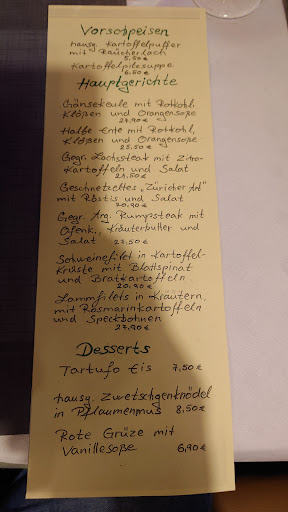 Vorschpeisen
hausg. Kartoffelpuffer
mit Räucherlach
8,50
Kartoffelpilesuppe
6,50
Hauptgerichte
Gänsekeule mit Rotkohl,
Klößen und Orangensoße
27,90 €
Halbe Ente mit Rotkohl,
Klößen und Orangensoße
25,50 €
Gegr. Lachssteak mit Zitro-
Kartoffeln und Salat
21,50 €
Geschnetzeltes „Züricher Art"
mit Röstis und Salat
20,90 €
Gegr. Arg. Rumpsteak mit
Ofenk., Kräuterbutter und
Salat 27,50 €
Schweinefilet in Kartoffel-
Kruste mit Blattspinat
und Bratkartoffeln
20,90 €
Lammfilets in Kräutern,
mit Rosmarinkartoffeln
und Speckbohnen
27,90 €
Desserts
Tartufo Eis 7,50 €
hausg. Zwetschgenknödel
in Pflaumenmus 8,50 €
Rote Grüze mit
Vanillesoße 6,90 €